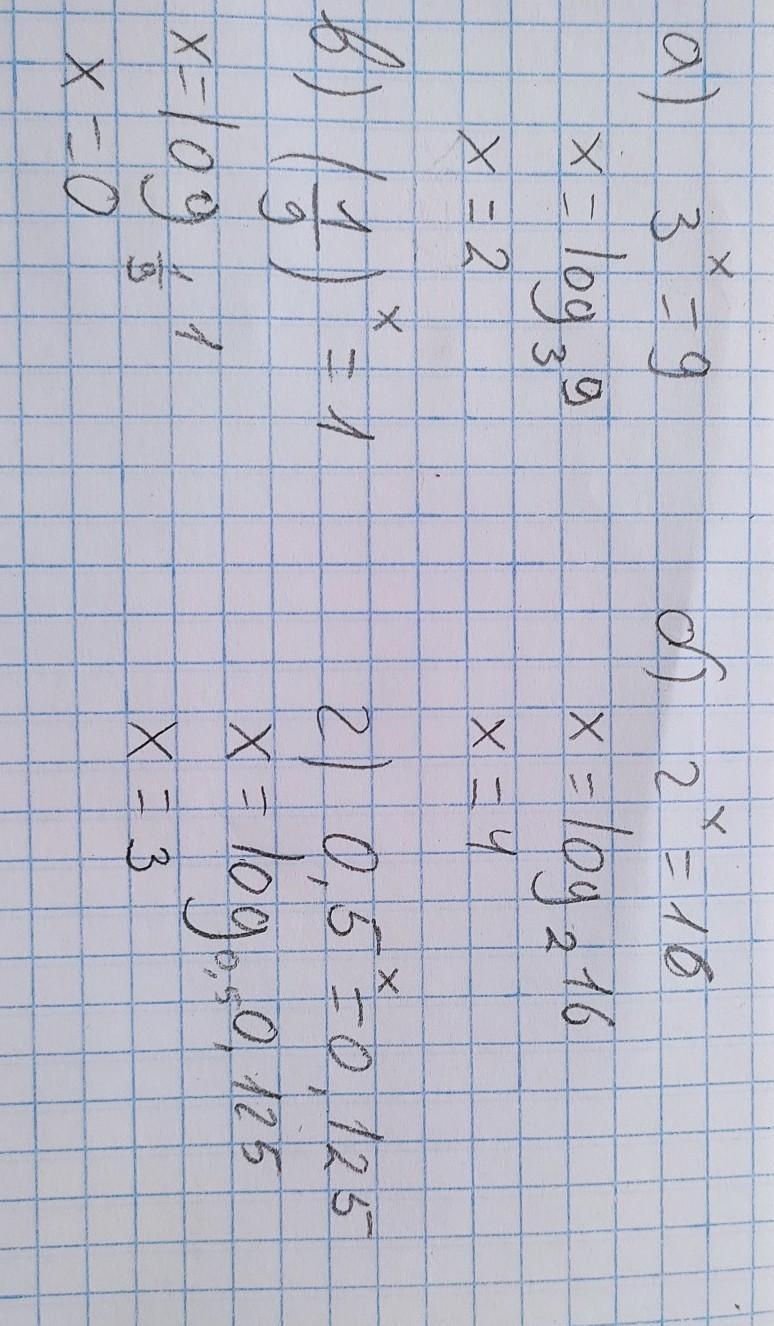 а) 3ˣ = 9
x = log₃ 9
x = 2
б) 2ˣ = 16
x = log₂ 16
x = 4
в) (1/9)ˣ = 1
x = log_(1/9) 1
x = 0
г) 0,5ˣ = 0,125
x = log₀,₅ 0,125
x = 3